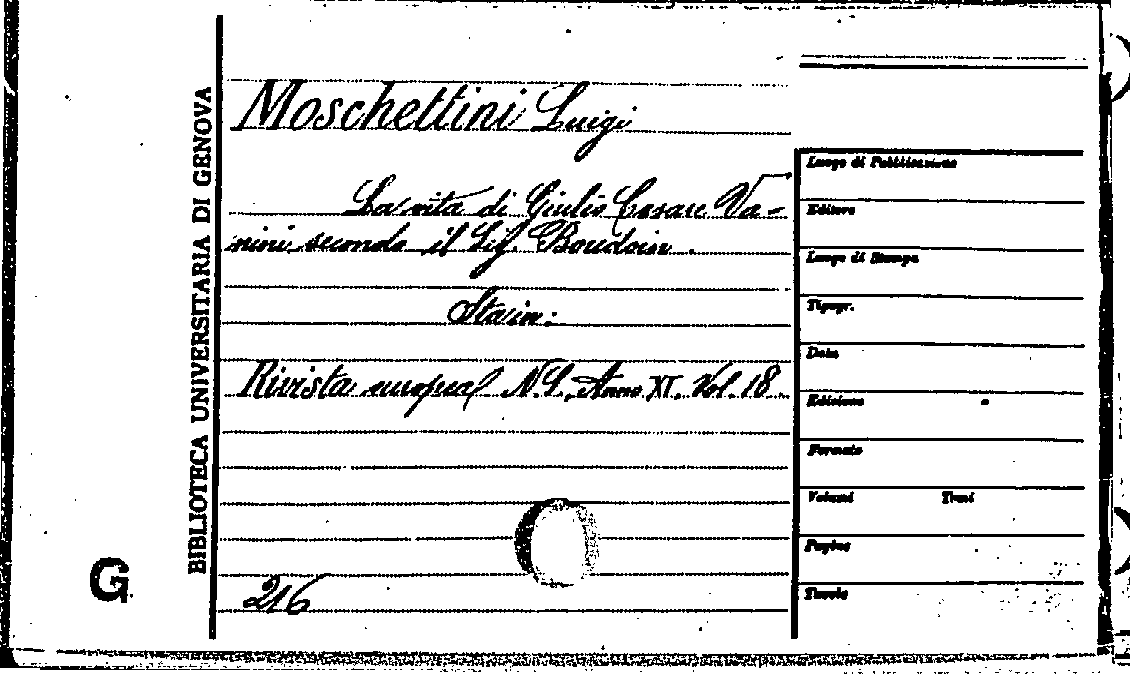 BIBLIOTECA UNIVERSITARIA DI GENOVA
G
Moschettini Luigi
La vita di Giulio Cesare Va-
nini secondo il Sig. Boudoin.
Sta in:
Rivista europea N.S., Anno XI. Vol. 18
216
Luogo di Pubblicazione
Editore
Luogo di Stampa
Tipogr.
Data
Edizione
Formato
Volumi Tomi
Pagine
Tavole